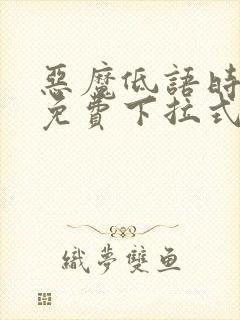 惡魔低語時
免費下拉式
織夢雙鱼